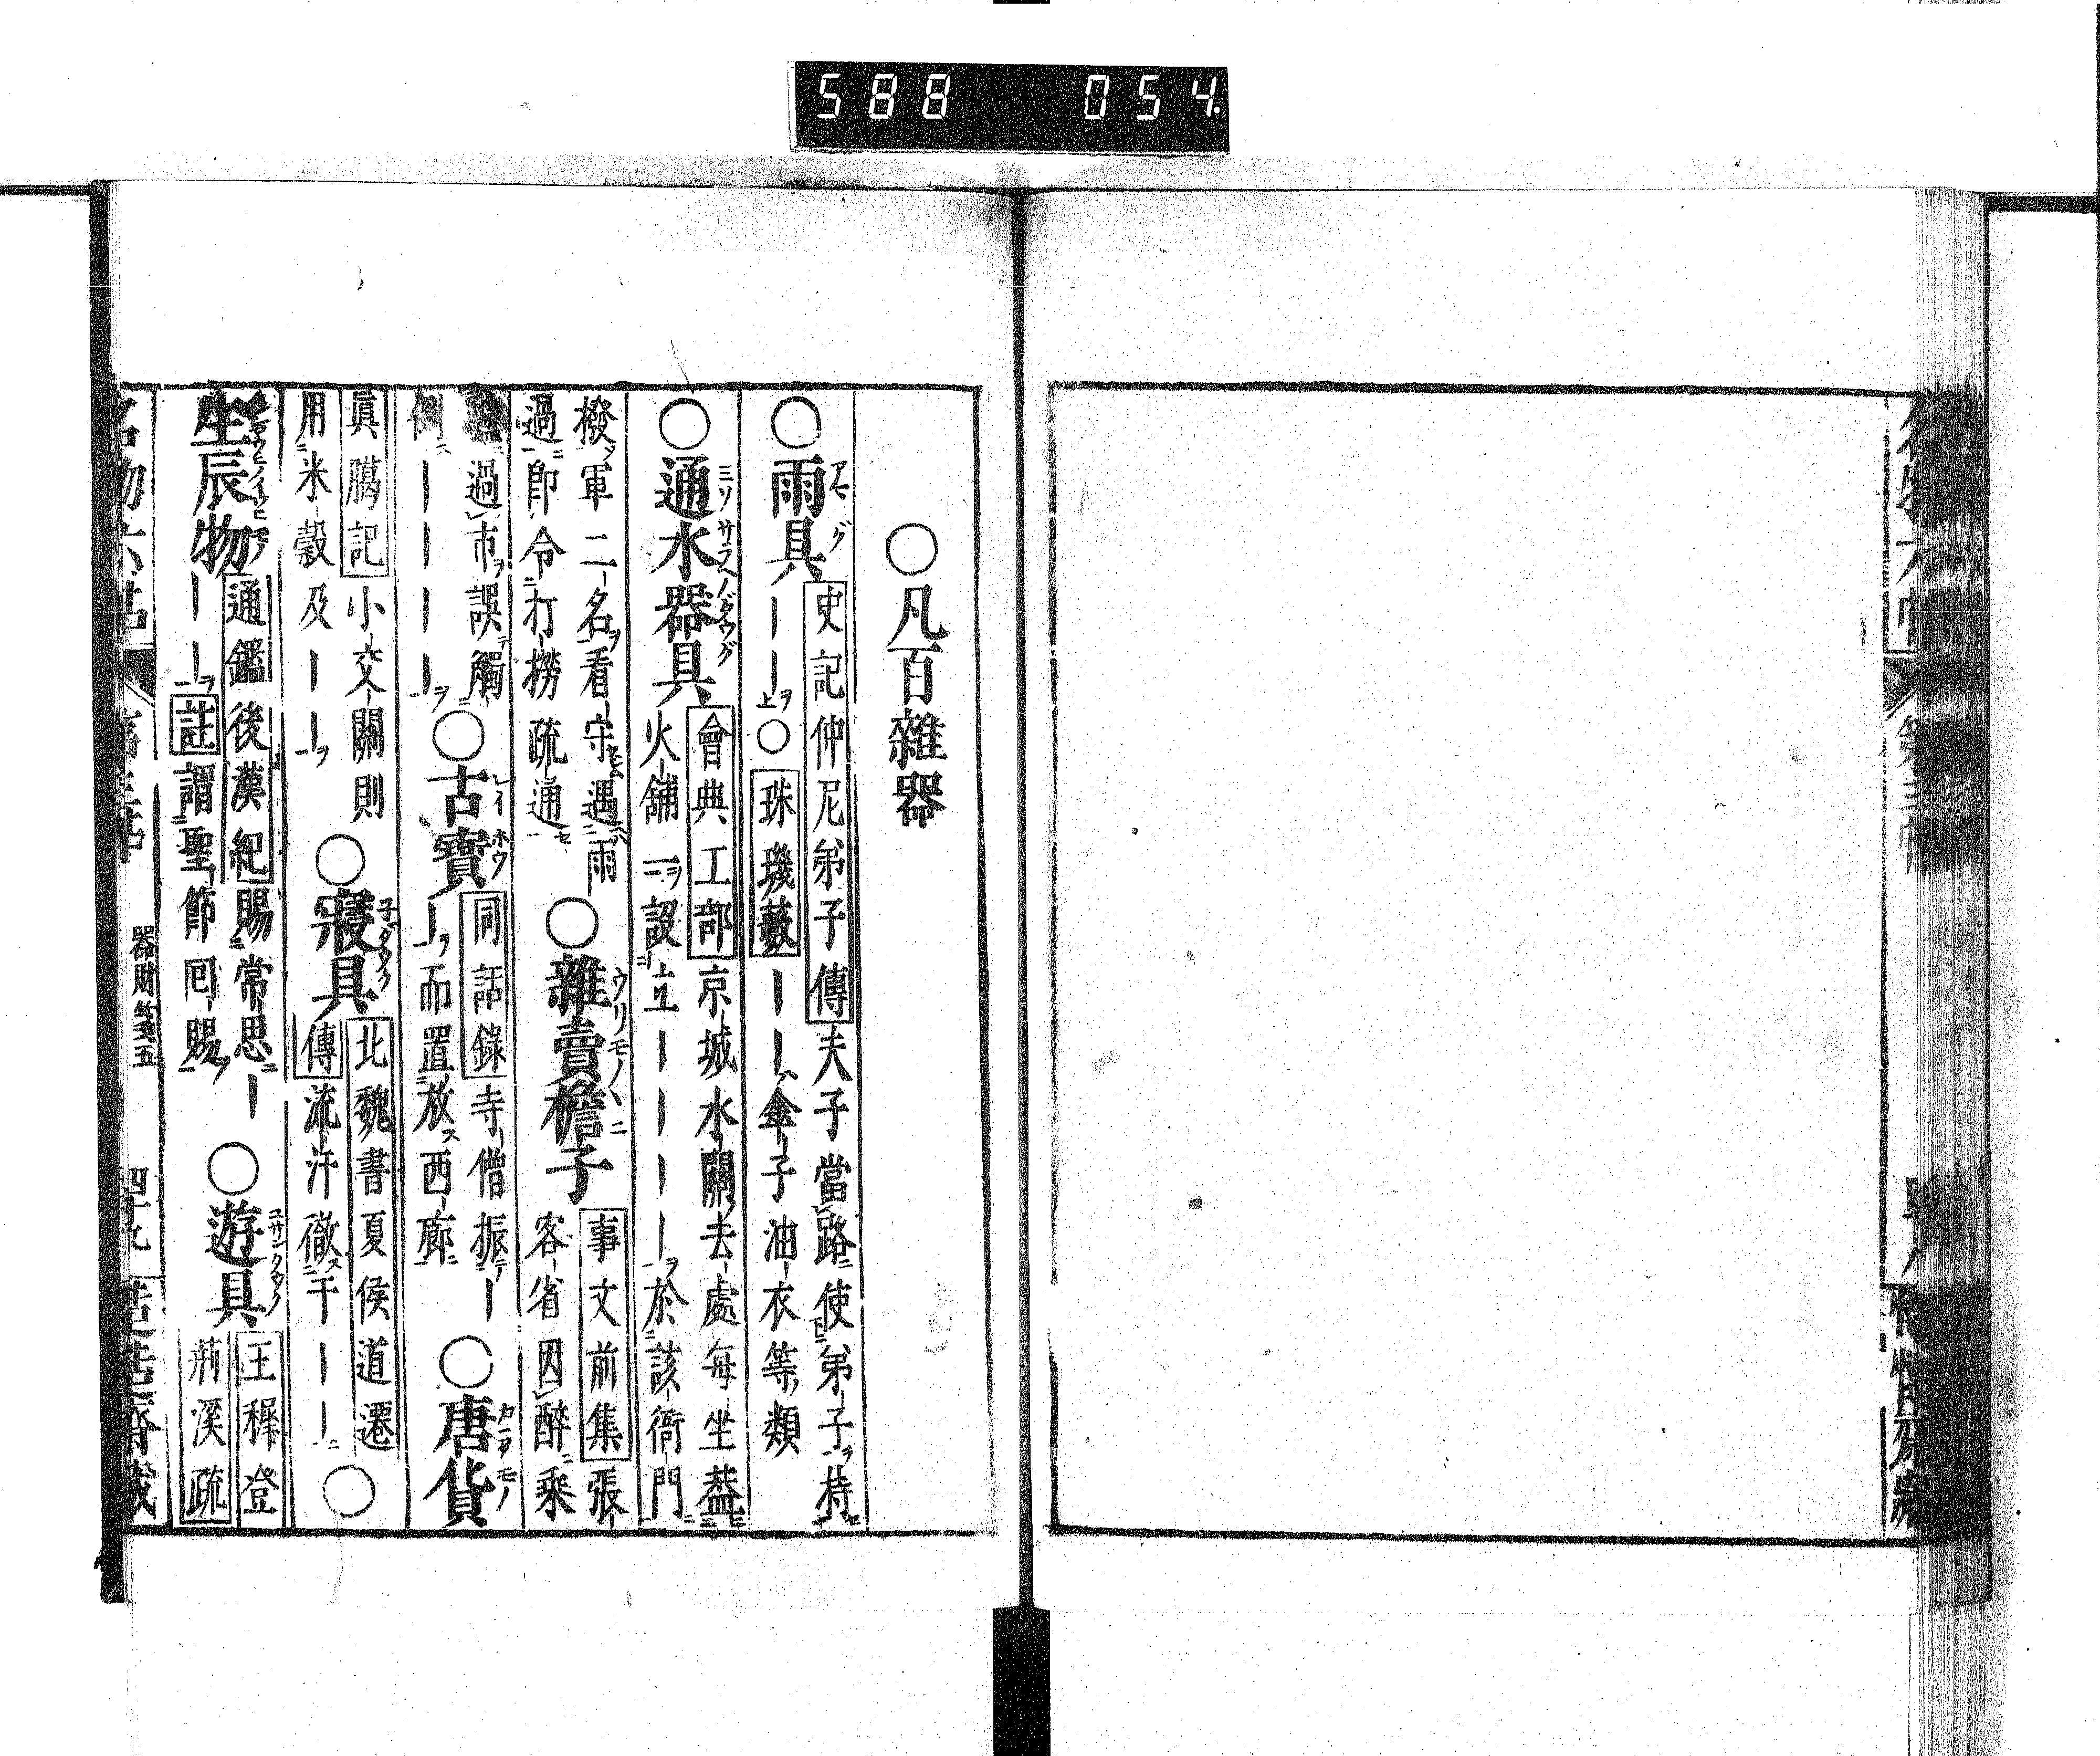 588 054
○凡百雜器
○雨具 史記仲尼弟子傳夫子當路使弟子持
――○珠璣藪――傘子油衣等類
○通水器具 會典工部京城水關去處每坐蓋
火舖一設立――――於該衙門
撥軍二名看守遇雨
過即令打撈疏通
○雜賣檐子 事文前集張
客省因醉乘
過市誤觸
――――
○古寶 同話錄寺僧振―
―而置放西廊
○唐貨
眞臈記小交關則
用米穀及――
○寢具 北魏書夏侯道遷
傳流汗徹于――
○
生辰物 通鑑後漢紀賜常思―
――註謂聖節回賜
○遊具 王穉登
荊溪疏
名物六帖
器財箋五
四十九